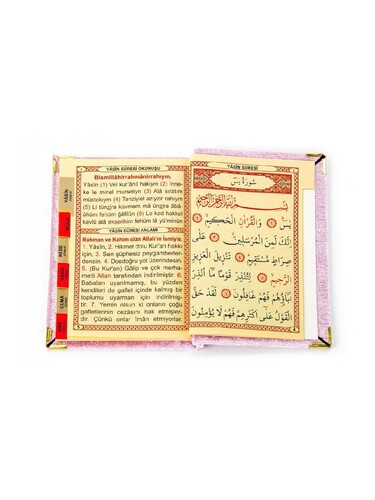 YÂSİN SÛRESİ OKUNUŞU
Bismillâhirrahmânirrahıym.
Yâsîn (1) Vel kur'ânil hakiym (2) inne-
ke le minel murseliyn (3) Alâ sırâtım
müstekıym (4) Tenziylel aziyzir rahıym
(5) Li tünzira kavmem mâ ünzira âbâ-
ühüm fehüm ğâfilûn (6) Le kad hakkal
kavlü alâ ekserihim fehüm lâ yü'minûn
YÂSİN SÛRESİ ANLAMI
Rahman ve Rahim olan Allah'ın ismiyle.
1. Yâsîn, 2. Hikmet dolu Kur'an hakkı
için, 3. Sen şüphesiz peygamberler-
densin. 4. Dosdoğru yol üzerindesin.
5. (Bu Kur'an) Gâlip ve çok merha-
metli Allah tarafından indirilmiştir. 6.
Babaları uyarılmamış, bu yüzden
kendileri de gaflet içinde kalmış bir
toplumu uyarman için indirilmiş-
tir. 7. Yemin olsun ki onların çoğu
gafletlerinin cezâsını hak etmişler-
dir. Çünkü onlar îman etmiyorlar.
YÂSİN
CUMA
YÂSİN SÛRESİ
سُورَةُ يٰسٓ
بِسْمِ اللّٰهِ الرَّحْمٰنِ الرَّحِيمِ
يٰسٓ ﴿١﴾ وَالْقُرْاٰنِ الْحَكِيمِ ﴿٢﴾
اِنَّكَ لَمِنَ الْمُرْسَلِينَ ﴿٣﴾ عَلٰى
صِرَاطٍ مُسْتَقِيمٍ ﴿٤﴾ تَنْزِيلَ الْعَزِيزِ
الرَّحِيمِ ﴿٥﴾ لِتُنْذِرَ قَوْمًا مَٓا اُنْذِرَ
اٰبَٓاؤُهُمْ فَهُمْ غَافِلُونَ ﴿٦﴾ لَقَدْ حَقَّ
الْقَوْلُ عَلٰٓى اَكْثَرِهِمْ فَهُمْ لَا يُؤْمِنُونَ